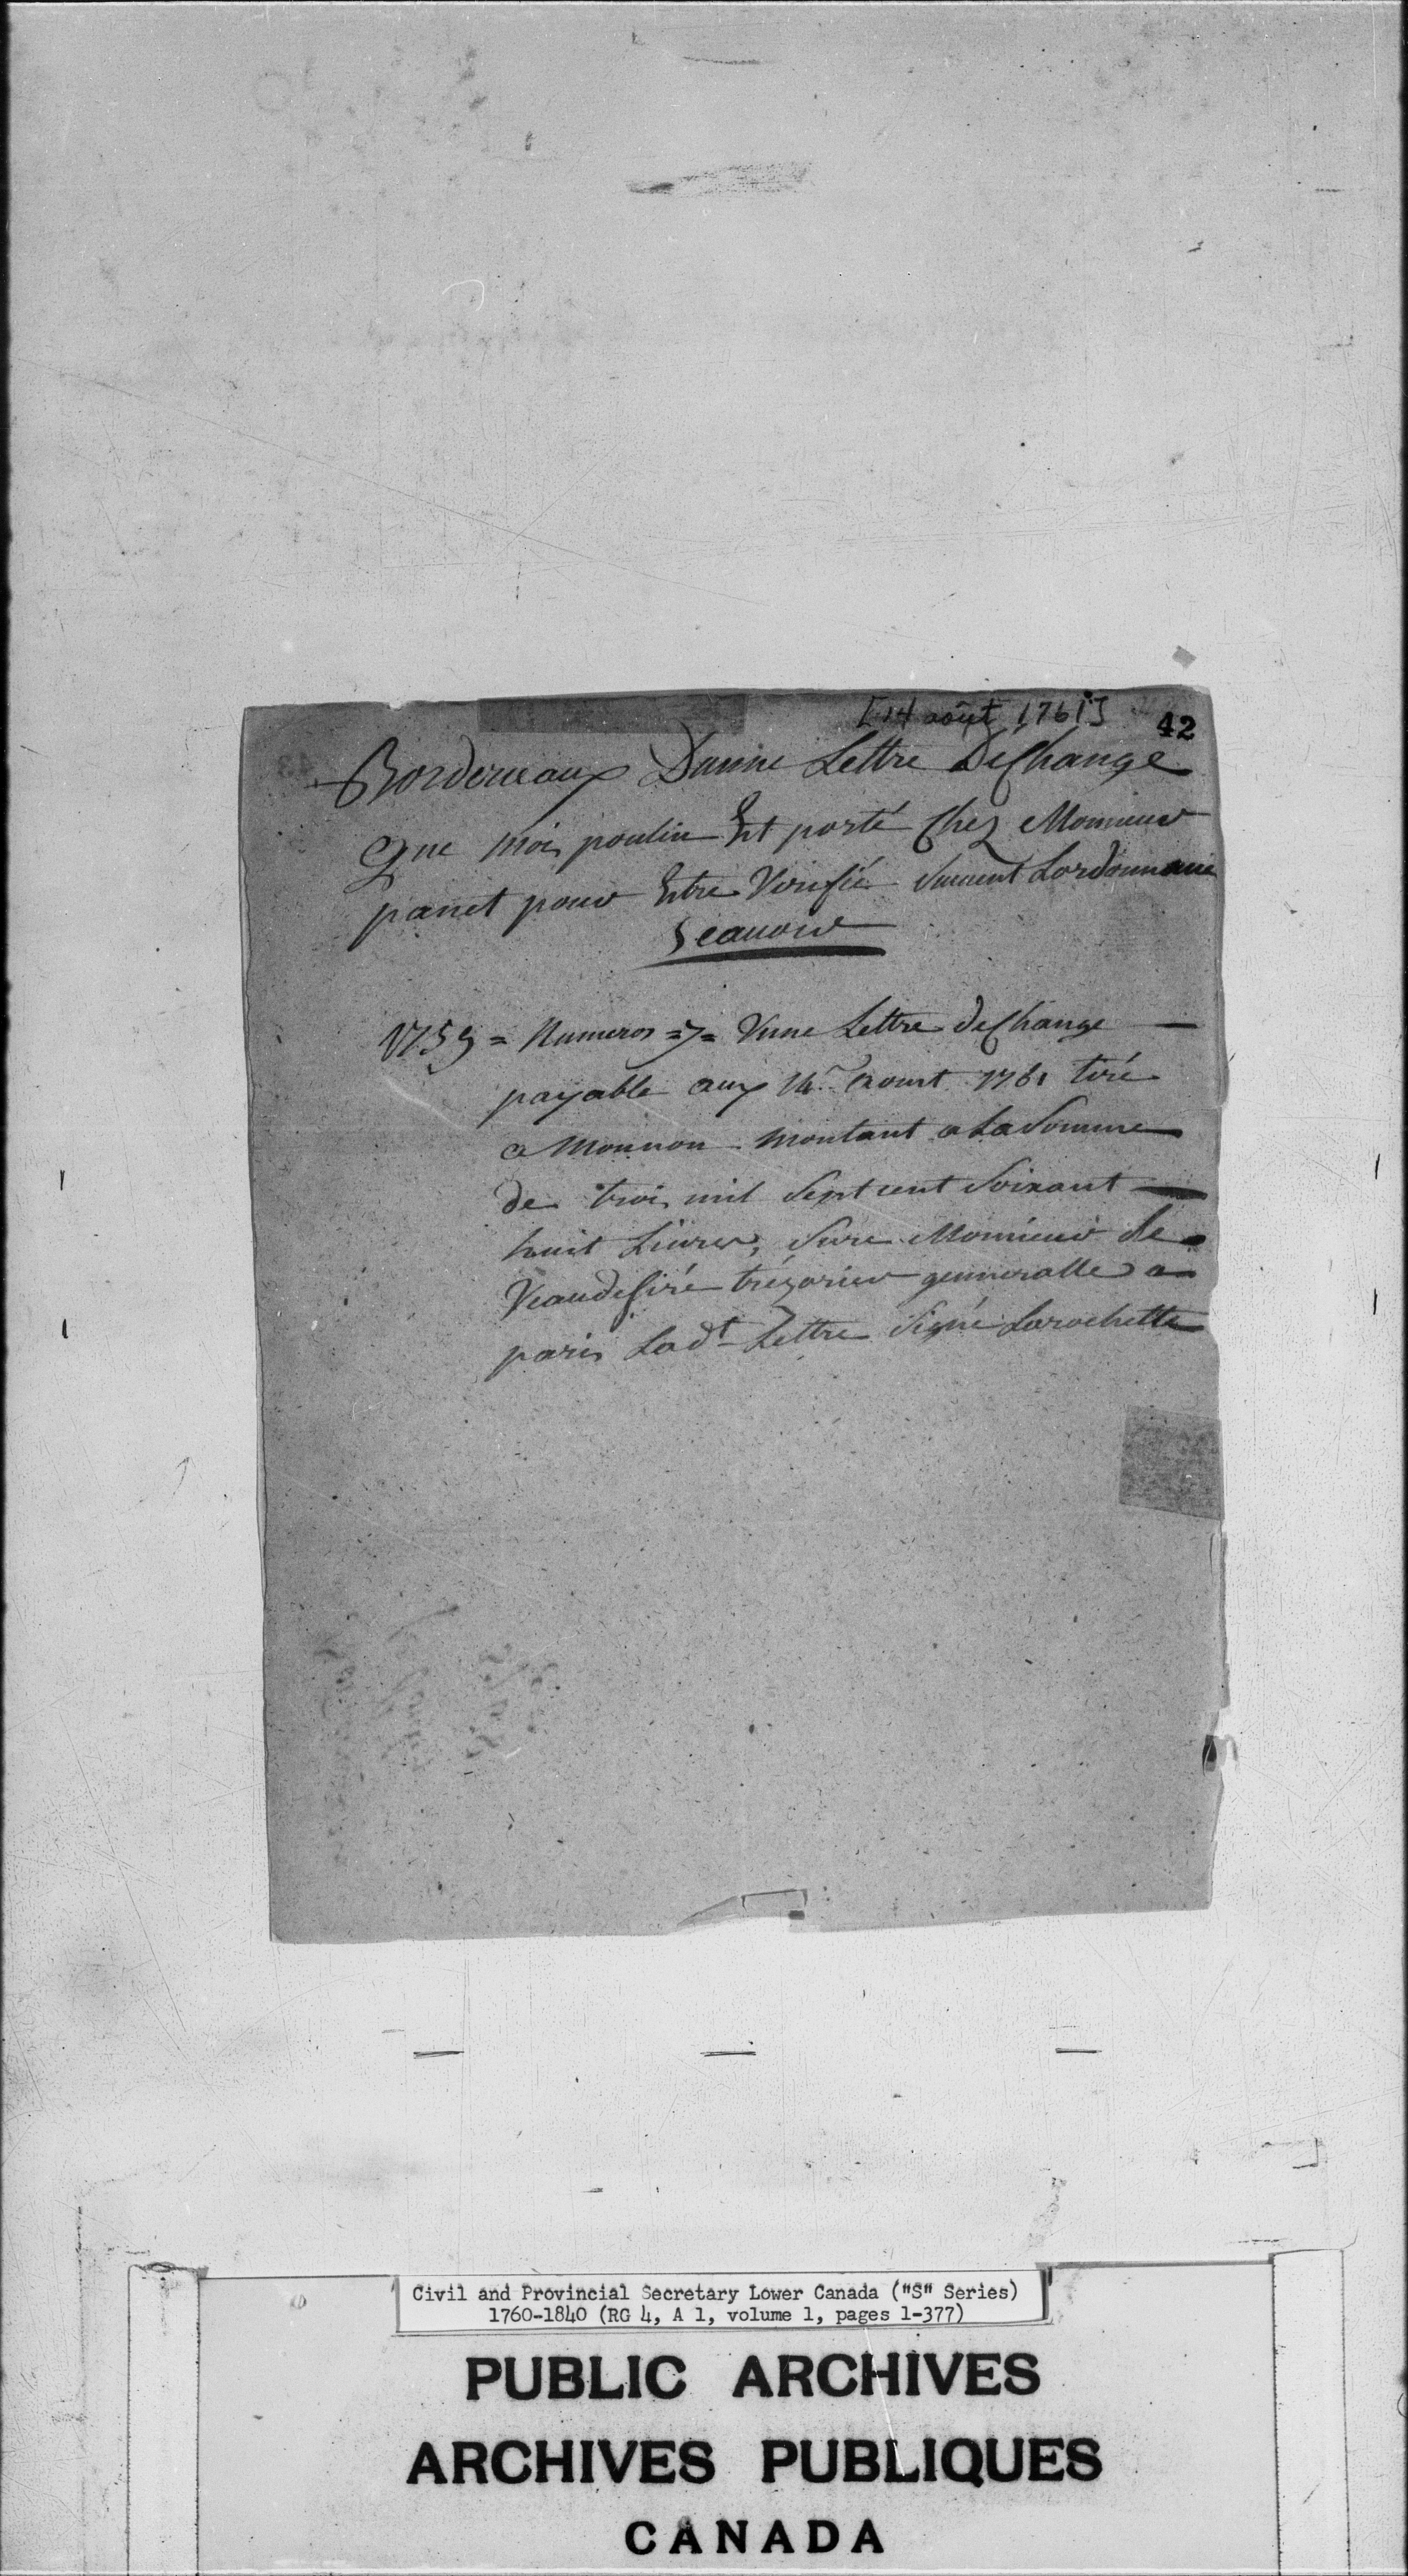 [14 août 1761]
42
Bordereaux Dunne Lettre DeChange
Que moi poulin Est porté Chez Monsieur
panet pour Estre Verifié Suivent Lordonnance
Scauoir
1759 = Numeros =7= Vnne Lettre deChange —
payable aux 14r aoust 1761 tiré
a Monnon montant a La Somme
de trois mil Sept cent Soixant —
huit Liures, Sure Monsieur de
Veaudesiré trézorier genneralle a
paris Ladt Lettre Signé Larochette
Civil and Provincial Secretary Lower Canada ("S" Series)
1760-1840 (RG 4, A 1, volume 1, pages 1-377)
PUBLIC ARCHIVES
ARCHIVES PUBLIQUES
CANADA